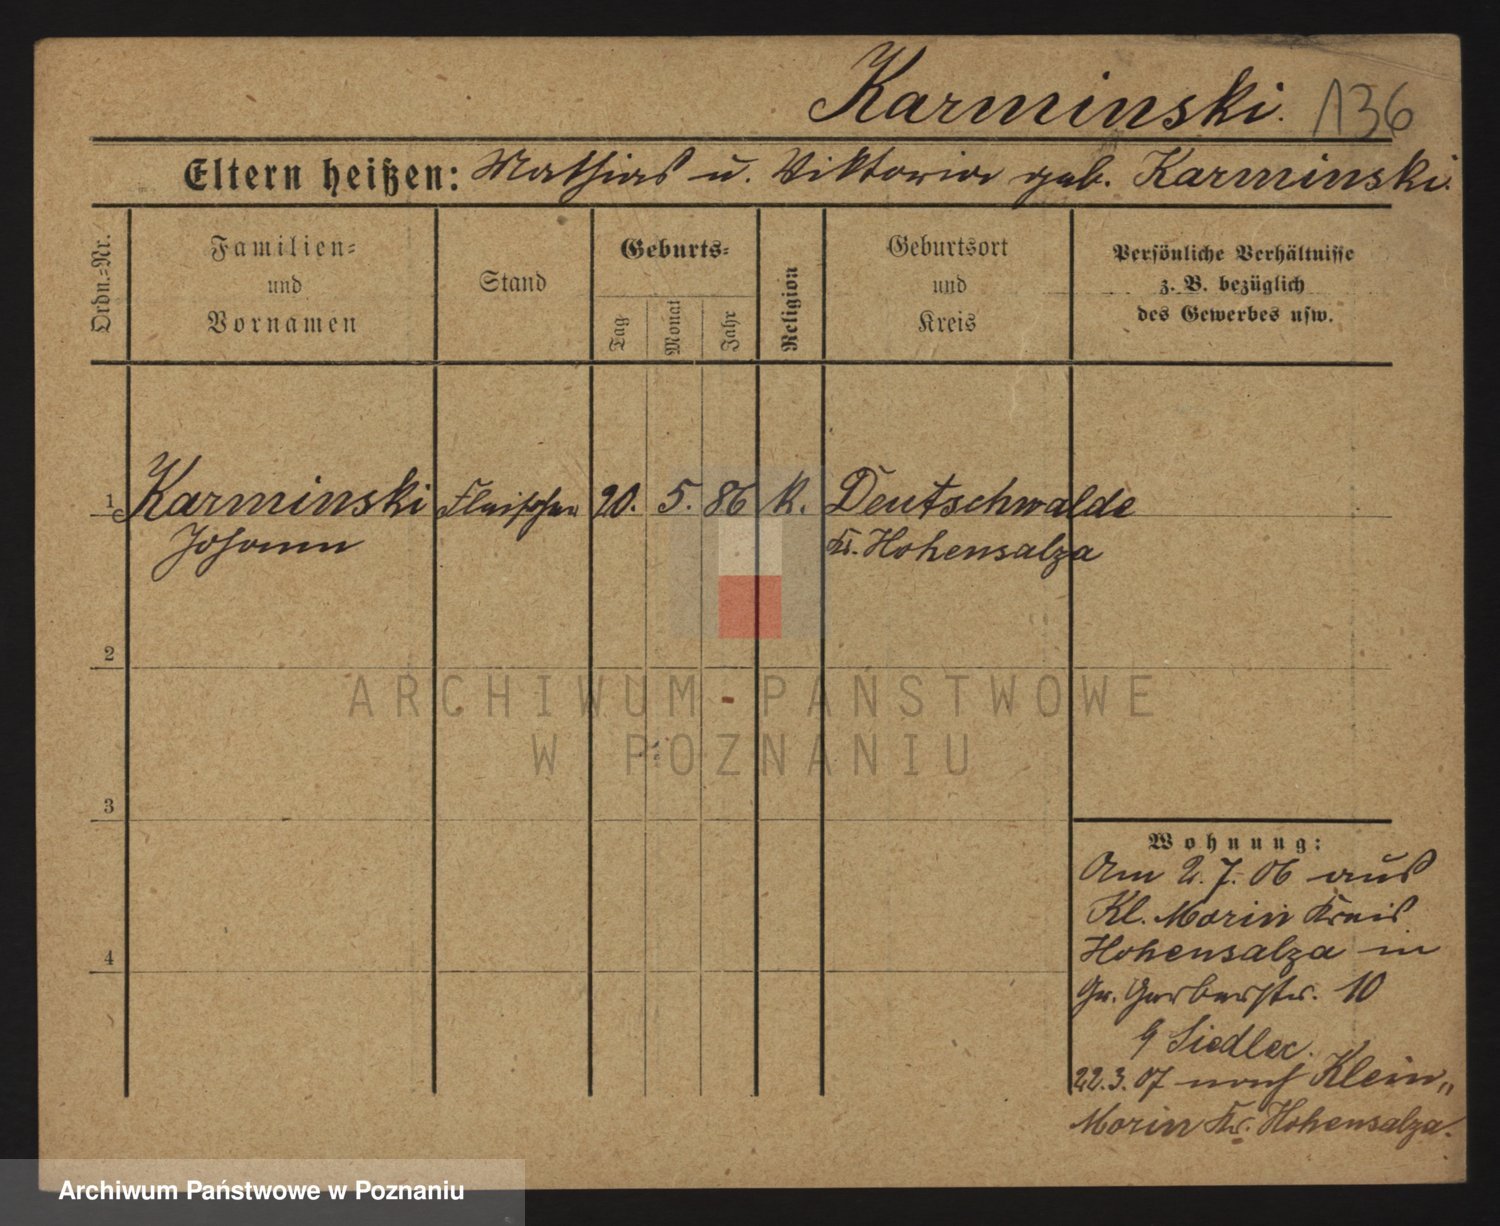 Karminski. 136
Eltern heißen: Mathias u. Viktoria geb. Karminski.
Ordn.=Nr.
Familien=
und
Vornamen
Stand
Geburts=
Tag
Monat
Jahr
Religion
Geburtsort
und
Kreis
Persönliche Verhältnisse
z. B. bezüglich
des Gewerbes usw.
1 Karminski Fleischer 20. 5. 86 k. Deutschwalde
Johann Kr. Hohensalza
2
3
4
Wohnung:
Am 2.7.06 aus
Kl. Morin Kreis
Hohensalza in
Gr. Gerberstr. 10
Siedler.
22.3.07 nach Klein„
Morin Kr. Hohensalza.
ARCHIWUM PAŃSTWOWE
W POZNANIU
Archiwum Państwowe w Poznaniu